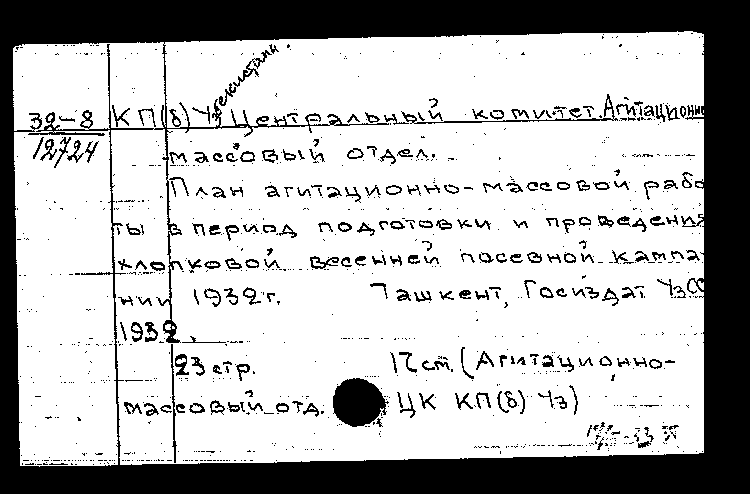 32-8 КП(б) Узбекистана. Центральный комитет. Агитационно
12724
массовый отдел.
План агитационно-массовой рабо
ты в период подготовки и проведения
хлопковой весенней посевной кампа-
нии 1932 г. Ташкент, Госиздат УзСС
1932.
23 стр. 17 см. (Агитационно-
массовый отд. ЦК КП(б) Уз)